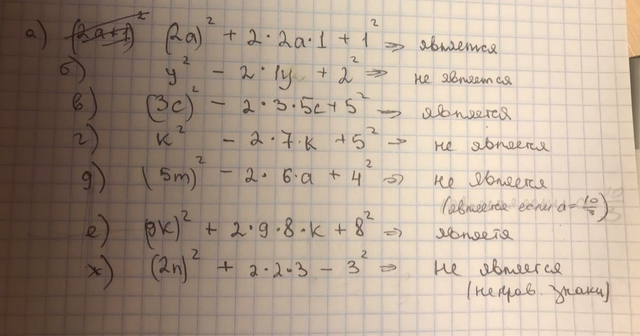 а) (2a+1)² (2a)² + 2·2a·1 + 1² => является
б) y² - 2·1y + 2² => не является
в) (3c)² - 2·3·5c + 5² => является
г) k² - 2·7·k + 5² => не является
д) (5m)² - 2·6·a + 4² => не является
(является если a=
е) (9k)² + 2·9·8·k + 8² => являетя
ж) (2n)² + 2·2·3 - 3² => не является
(неправ. знаки)